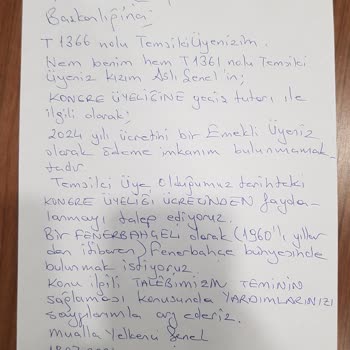 Başkanlığına;
T 1366 nolu Temsilci Üyenizim.
Hem benim hem T1361 nolu Temsilci
Üyeniz kızım Aslı Şenel'in;
KONGRE ÜYELİĞİNE geçiş tutarı ile
ilgili olarak;
2024 yılı ücretini bir Emekli Üyeniz
olarak ödeme imkanım bulunmamak-
tadır.
Temsilci Üye Olduğumuz tarihteki
KONGRE ÜYELİĞİ ÜCRETİNDEN fayda-
lanmayı talep ediyoruz.
Bir FENERBAHÇELİ olarak (1960'lı yıllar
dan itibaren) Fenerbahçe bünyesinde
bulunmak istiyoruz.
Konu ilgili TALEBİMİZİN TEMİNİN
sağlaması konusunda YARDIMLARINIZI
saygılarımla arz ederiz.
Mualla Yelkenci Şenel